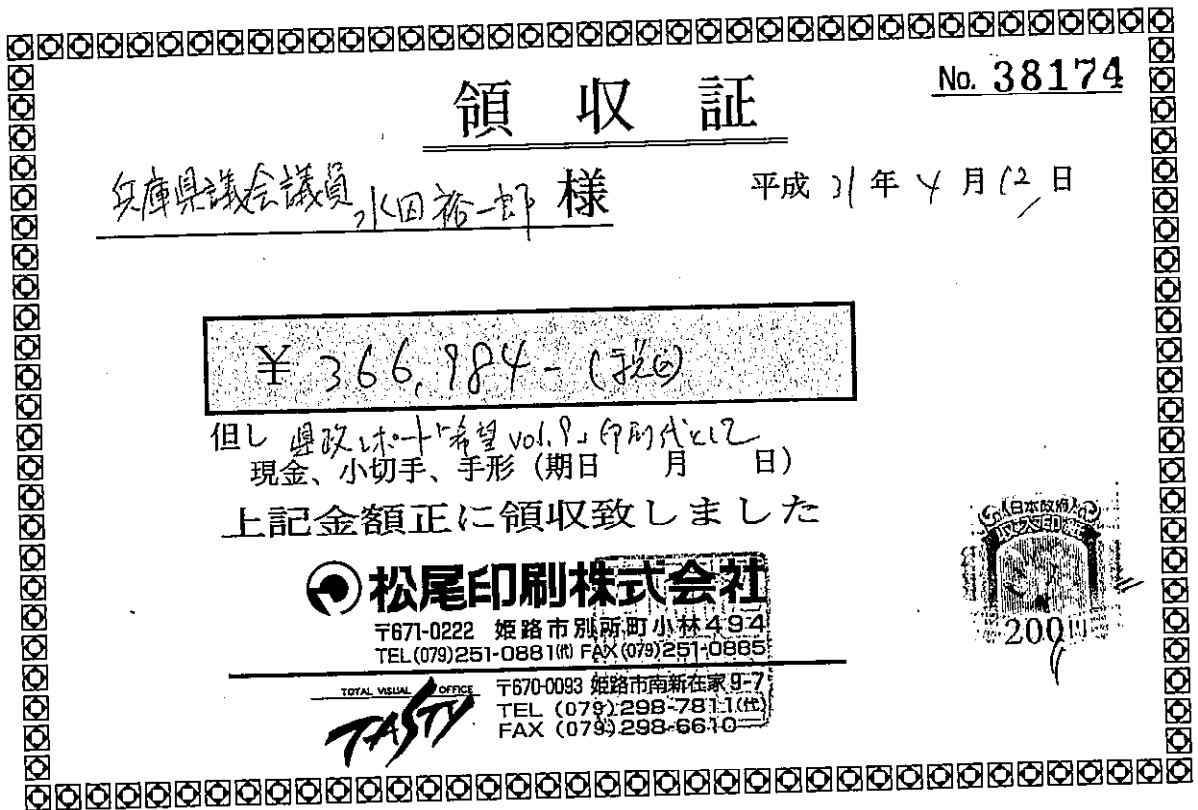 No. 38174
領収証
兵庫県議会議員 水田裕一郎 様
平成 31 年 4 月 12 日
¥ 366,984- (税込)
但し 県政レポート「希望 vol.9」印刷代として
現金、小切手、手形 (期日 月 日)
上記金額正に領収致しました
松尾印刷株式会社
〒671-0222 姫路市別所町小林494
TEL(079)251-0881(代) FAX(079)251-0885
TOTAL VISUAL OFFICE
TASTY
〒670-0093 姫路市南新在家9-7
TEL (079)298-7811(代)
FAX (079)298-6610
日本政府
収入印紙
200円